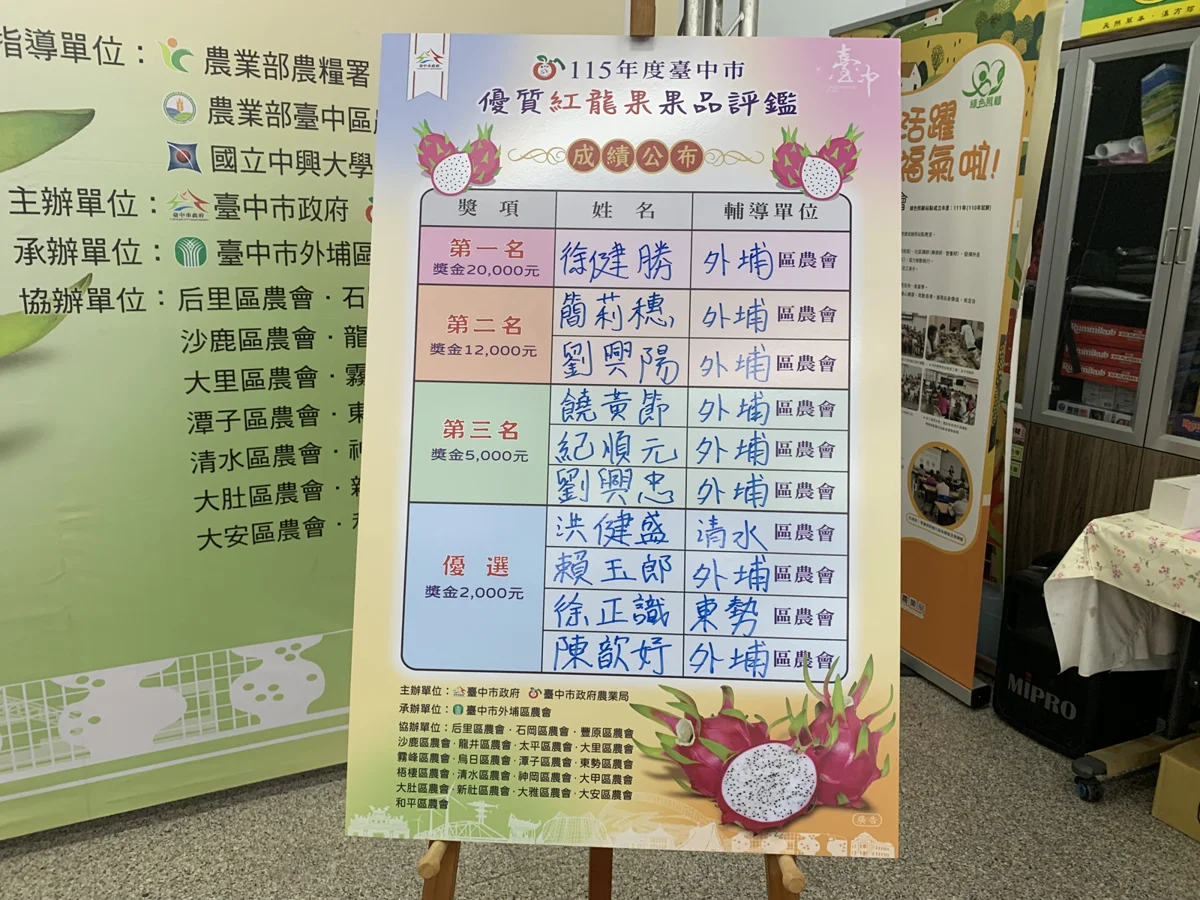 指導單位：農業部農糧署
農業部臺中區
國立中興大學
主辦單位：臺中市政府
承辦單位：臺中市外埔區
協辦單位：后里區農會．石
沙鹿區農會．龍
大里區農會．霧
潭子區農會．東
清水區農會．神
大肚區農會．新
大安區農會．
臺中市政府
臺中
115年度臺中市
優質紅龍果果品評鑑
成績公布
獎項 姓名 輔導單位
第一名 獎金20,000元 徐健勝 外埔區農會
第二名 獎金12,000元 簡莉穗 外埔區農會
劉興陽 外埔區農會
第三名 獎金5,000元 饒黃節 外埔區農會
紀順元 外埔區農會
劉興忠 外埔區農會
優選 獎金2,000元 洪健盛 清水區農會
賴玉郎 外埔區農會
徐正識 東勢區農會
陳歆妤 外埔區農會
主辦單位：臺中市政府 臺中市政府農業局
承辦單位：臺中市外埔區農會
協辦單位：后里區農會．石岡區農會．豐原區農會
沙鹿區農會．龍井區農會．太平區農會．大里區農會
霧峰區農會．烏日區農會．潭子區農會．東勢區農會
梧棲區農會．清水區農會．神岡區農會．大甲區農會
大肚區農會．新社區農會．大雅區農會．大安區農會
和平區農會
廣告
綠色照顧
活躍
福氣啦！
Rummikub
MIPRO